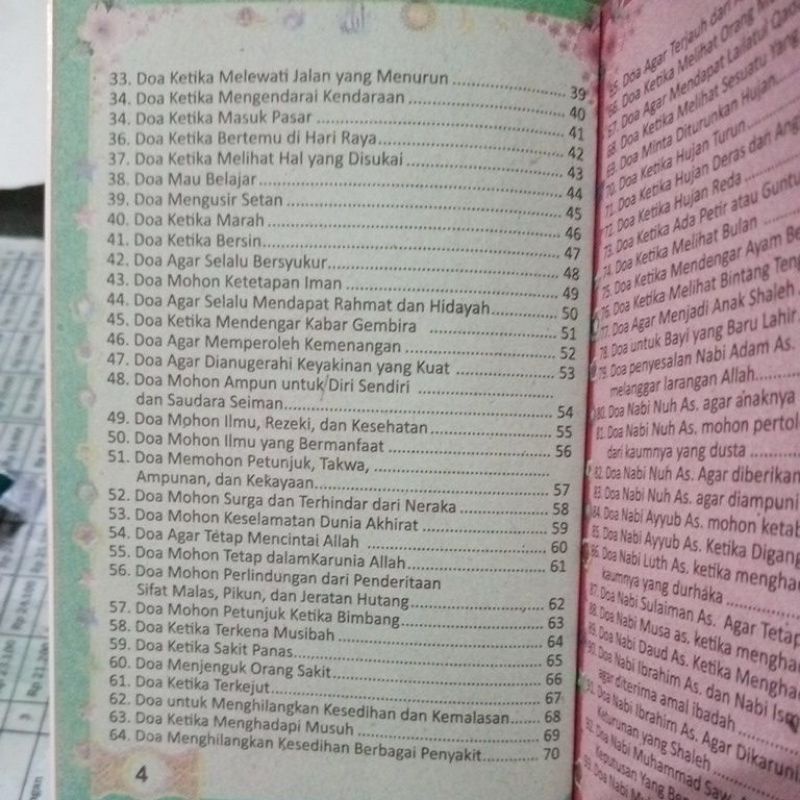 33. Doa Ketika Melewati Jalan yang Menurun ........ 39
34. Doa Ketika Mengendarai Kendaraan ........ 40
34. Doa Ketika Masuk Pasar ........ 41
36. Doa Ketika Bertemu di Hari Raya ........ 42
37. Doa Ketika Melihat Hal yang Disukai ........ 43
38. Doa Mau Belajar ........ 44
39. Doa Mengusir Setan ........ 45
40. Doa Ketika Marah ........ 46
41. Doa Ketika Bersin ........ 47
42. Doa Agar Selalu Bersyukur ........ 48
43. Doa Mohon Ketetapan Iman ........ 49
44. Doa Agar Selalu Mendapat Rahmat dan Hidayah ........ 50
45. Doa Ketika Mendengar Kabar Gembira ........ 51
46. Doa Agar Memperoleh Kemenangan ........ 52
47. Doa Agar Dianugerahi Keyakinan yang Kuat ........ 53
48. Doa Mohon Ampun untuk Diri Sendiri ........
dan Saudara Seiman ........ 54
49. Doa Mohon Ilmu, Rezeki, dan Kesehatan ........ 55
50. Doa Mohon Ilmu yang Bermanfaat ........ 56
51. Doa Memohon Petunjuk, Takwa, ........
Ampunan, dan Kekayaan ........ 57
52. Doa Mohon Surga dan Terhindar dari Neraka ........ 58
53. Doa Mohon Keselamatan Dunia Akhirat ........ 59
54. Doa Agar Tetap Mencintai Allah ........ 60
55. Doa Mohon Tetap dalamKarunia Allah ........ 61
56. Doa Mohon Perlindungan dari Penderitaan
Sifat Malas, Pikun, dan Jeratan Hutang ........ 62
57. Doa Mohon Petunjuk Ketika Bimbang ........ 63
58. Doa Ketika Terkena Musibah ........ 64
59. Doa Ketika Sakit Panas ........ 65
60. Doa Menjenguk Orang Sakit ........ 66
61. Doa Ketika Terkejut ........ 67
62. Doa untuk Menghilangkan Kesedihan dan Kemalasan ........ 68
63. Doa Ketika Menghadapi Musuh ........ 69
64. Doa Menghilangkan Kesedihan Berbagai Penyakit ........ 70
4
65. Doa Agar Terjauh dari
66. Doa Ketika Melihat Orang
67. Doa Agar Mendapat Lailatul
68. Doa Ketika Melihat Sesuatu Yang
69. Doa Minta Diturunkan Hujan
70. Doa Ketika Hujan Turun
71. Doa Ketika Hujan Deras dan
72. Doa Ketika Hujan Reda
73. Doa Ketika Ada Petir atau
74. Doa Ketika Melihat Bulan
75. Doa Ketika Mendengar Ayam
76. Doa Ketika Melihat Bintang
77. Doa Agar Menjadi Anak Shaleh
78. Doa untuk Bayi yang Baru Lahir
79. Doa penyesalan Nabi Adam As.
melanggar larangan Allah
80. Doa Nabi Nuh As. agar anaknya
81. Doa Nabi Nuh As. mohon
dari kaumnya yang dusta
82. Doa Nabi Nuh As. Agar diberikan
83. Doa Nabi Nuh As. agar diampuni
84. Doa Nabi Ayyub As. mohon
85. Doa Nabi Ayyub As. Ketika
86. Doa Nabi Luth As. ketika
kaumnya yang durhaka
87. Doa Nabi Sulaiman As. Agar Tetap
88. Doa Nabi Musa as. ketika
89. Doa Nabi Daud As. Ketika
90. Doa Nabi Ibrahim As. dan Nabi
agar diterima amal ibadah
91. Doa Nabi Ibrahim As. Agar
Keturunan yang Shaleh
92. Doa Nabi Muhammad Saw.
Keputusan Yang
93. Doa Nabi